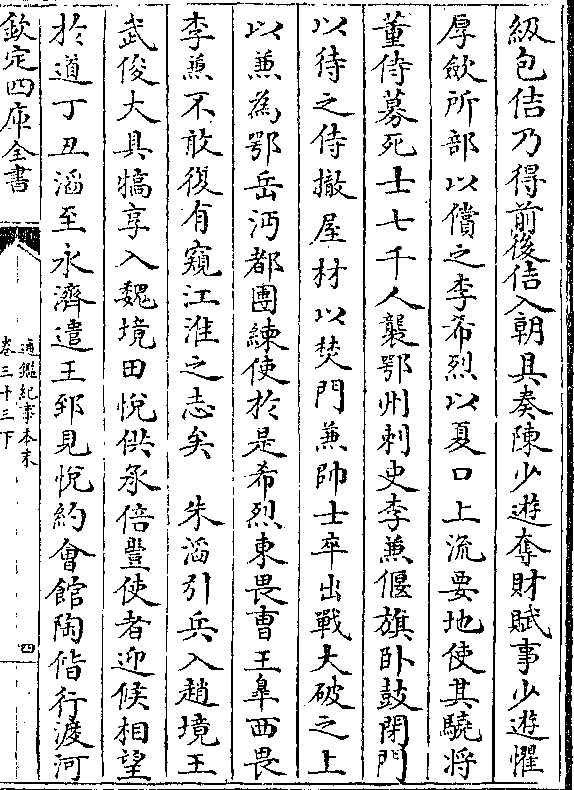 級包佶乃得前後佶入朝具奏陳少遊奪財賦事少遊懼
厚斂所部以償之李希烈以夏口上流要地使其驍將
董侍募死士七千人襲鄂州刺史李兼偃旗卧鼓閉門
以待之侍撤屋材以焚門兼帥士卒出戰大破之上
以兼為鄂岳沔都團練使於是希烈東畏曹王臯西畏
李兼不敢復有窺江淮之志矣　朱滔引兵入趙境王
武俊大具犒享入魏境田悦供承倍豐使者迎候相望
於道丁丑滔至永濟遣王郅見悦約會館陶偕行渡河
欽定四庫全書
通鑑紀事本末
卷三十三下
四